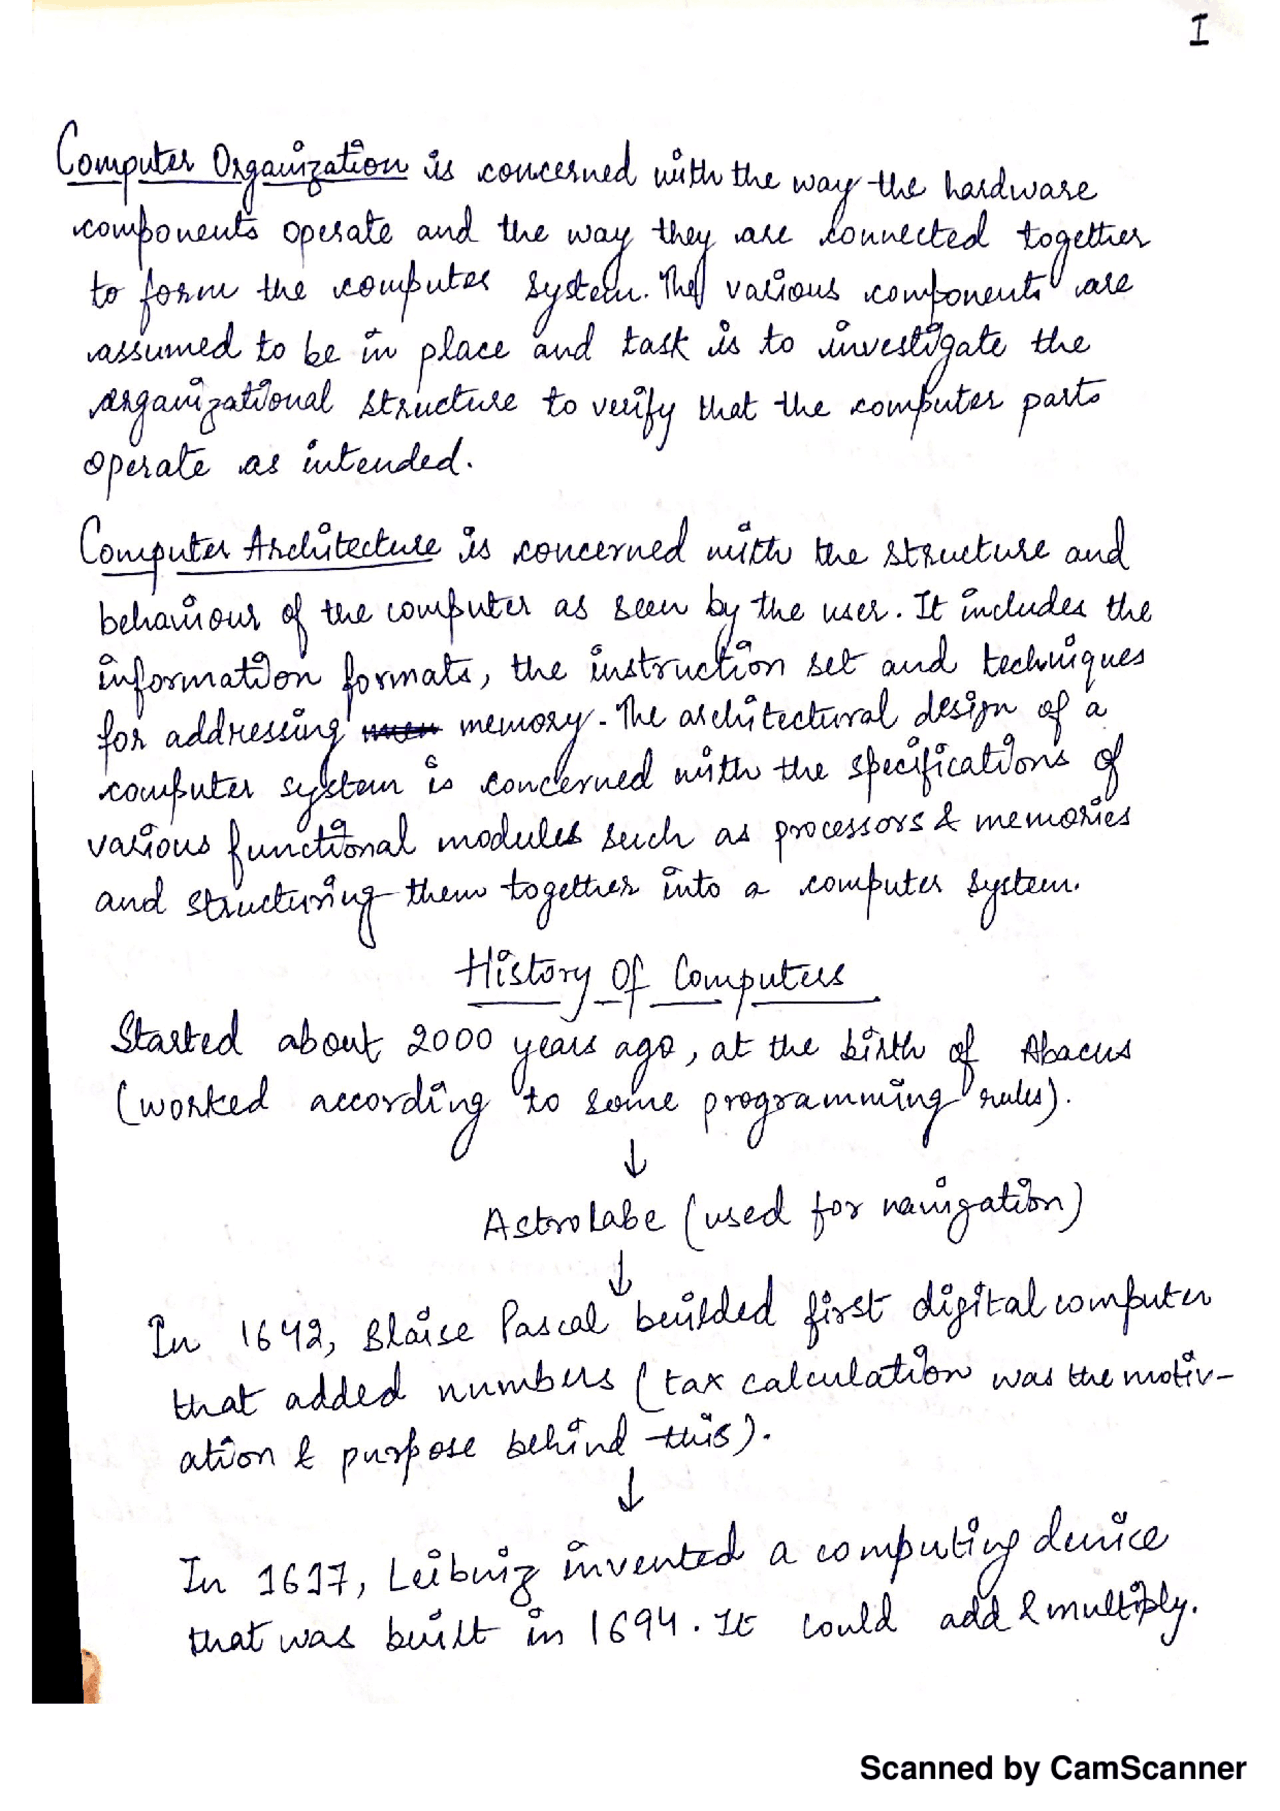 I
Computer Organization is concerned with the way the hardware
components operate and the way they are connected together
to form the computer system. The various components are
assumed to be in place and task is to investigate the
organizational structure to verify that the computer parts
operate as intended.
Computer Architecture is concerned with the structure and
behaviour of the computer as seen by the user. It includes the
information formats, the instruction set and techniques
for addressing memory. The architectural design of a
computer system is concerned with the specifications of
various functional modules such as processors & memories
and structuring them together into a computer system.
History Of Computers
Started about 2000 years ago, at the birth of Abacus
(worked according to some programming rules).
↓
Astrolabe (used for navigation)
↓
In 1642, Blaise Pascal builded first digital computer
that added numbers (tax calculation was the motiv-
ation & purpose behind this).
↓
In 1617, Leibniz invented a computing device
that was built in 1694. It could add & multiply.
Scanned by CamScanner